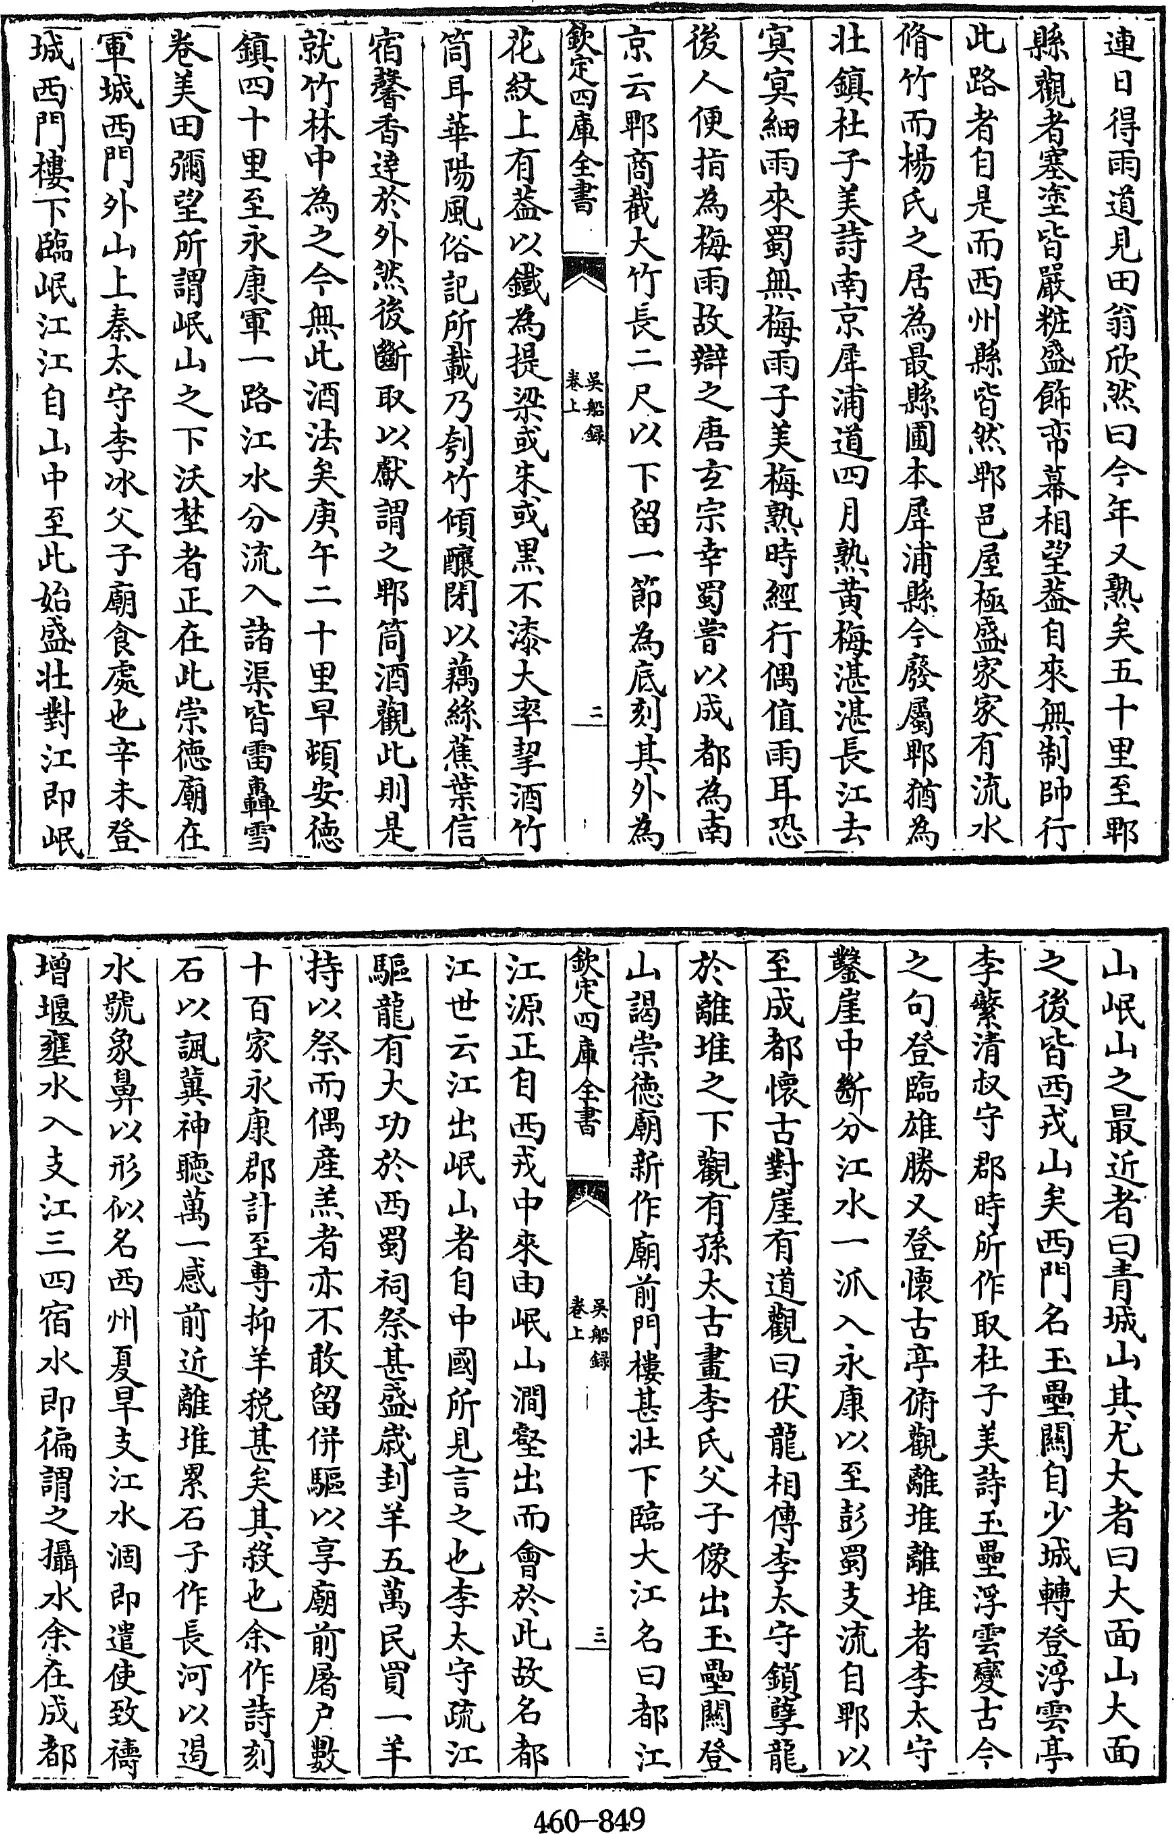 連日得雨道見田翁欣然曰今年又熟矣五十里至郫
縣觀者塞塗皆嚴粧盛飾帟幕相望葢自來無制帥行
此路者自是而西州縣皆然郫邑屋極盛家家有流水
脩竹而楊氏之居為最縣圃本犀浦縣今廢屬郫猶為
壯鎮杜子美詩南京犀浦道四月熟黃梅湛湛長江去
冥冥細雨來蜀無梅雨子美梅熟時經行偶值雨耳恐
後人便指為梅雨故辯之唐玄宗幸蜀嘗以成都為南
京云郫商截大竹長二尺以下留一節為底刻其外為
欽定四庫全書
吳船録
卷上
二
花紋上有葢以鐵為提梁或朱或黑不漆大率挈酒竹
筒耳華陽風俗記所載乃刳竹傾釀閉以藕絲蕉葉信
宿馨香達於外然後斷取以獻謂之郫筒酒觀此則是
就竹林中為之今無此酒法矣庚午二十里早頓安德
鎮四十里至永康軍一路江水分流入諸渠皆雷轟雪
卷美田彌望所謂岷山之下沃埜者正在此崇德廟在
軍城西門外山上秦太守李冰父子廟食處也辛未登
城西門樓下臨岷江江自山中至此始盛壯對江即岷
山岷山之最近者曰青城山其尤大者曰大面山大面
之後皆西戎山矣西門名玉壘關自少城轉登浮雲亭
李蘩清叔守郡時所作取杜子美詩玉壘浮雲變古今
之句登臨雄勝又登懷古亭俯觀離堆離堆者李太守
鑿崖中斷分江水一派入永康以至彭蜀支流自郫以
至成都懷古對崖有道觀曰伏龍相傳李太守鎖孽龍
於離堆之下觀有孫太古畫李氏父子像出玉壘關登
山謁崇德廟新作廟前門樓甚壯下臨大江名曰都江
欽定四庫全書
吳船録
卷上
三
江源正自西戎中來由岷山澗壑出而會於此故名都
江世云江出岷山者自中國所見言之也李太守疏江
驅龍有大功於西蜀祠祭甚盛歲刲羊五萬民買一羊
持以祭而偶產羔者亦不敢留併驅以享廟前屠户數
十百家永康郡計至專抑羊稅甚矣其殺也余作詩刻
石以諷冀神聽萬一感前近離堆累石子作長河以遏
水號象鼻以形似名西州夏旱支江水涸即遣使致禱
增堰壅水入支江三四宿水即徧謂之攝水余在成都
460-849